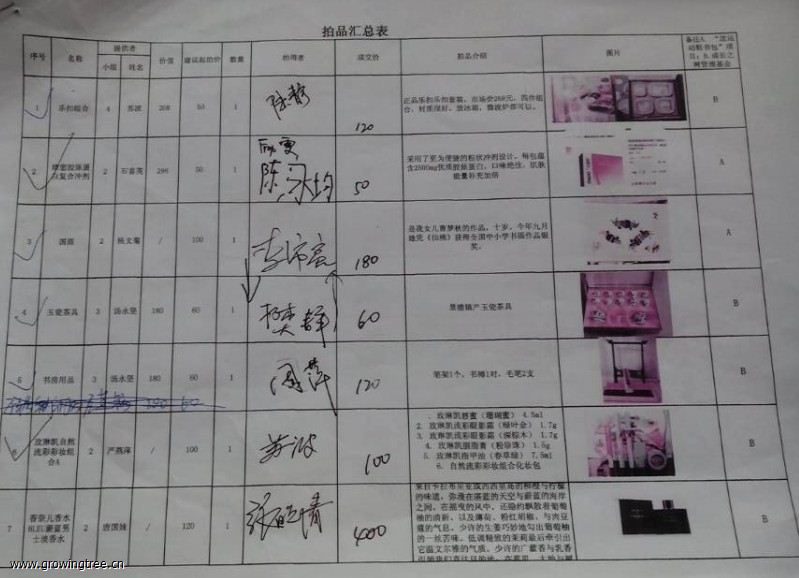 拍品汇总表
序号 名称 提供者 价值 建议起拍价 数量 拍得者 成交价 拍品介绍 图片
小组 姓名
项目；B.成长之
网管理基金
1 乐扣组合 4 苏波 268 50 1 陈静 120 B
正品乐扣乐扣套装，市场价268元，四件组
合，材质很好，放冰箱，微波炉都可以。
2 2 296 50 1 50 A
白复合冲剂
采用了至为便捷的粉状冲剂设计，每包蕴
含2500mg优质胶原蛋白，口味绝佳，肌肤
能量补充加倍
3 国画 2 杨文菊 / 100 1 180 A
是我女儿曹梦秋的作品，十岁，今年九月
获得全国中小学书画作品银
奖。
4 玉瓷茶具 3 汤永坚 180 60 1 60 B
景德镇产玉瓷茶具
5 书房用品 3 汤永坚 180 60 1 周萍 120 B
笔架1个，书镇1对，毛笔2支
6 玫琳凯自然
流彩彩妆组
合A
2 严燕萍 / 100 1 苏波 100 B
1. 玫琳凯唇蜜（珊瑚蜜） 4.5ml
2. 玫琳凯流彩眼影霜（绿叶金） 1.7g
3. 玫琳凯流彩眼影霜（深棕木） 1.7g
4. 玫琳凯胭脂膏（粉珍珠） 1.5g
5. 玫琳凯指甲油（春草绿） 7.5ml
6. 自然流彩彩妆组合化妆包
7 香奈儿香水
士淡香水
2 唐国妹 / 120 1 400 B
的味道，弥漫在湛蓝的天空与蔚蓝的海岸
之间。在摇曳的风中，还隐约飘散着葡萄
柚的清新，以及薄荷、粉红胡椒，与肉豆
蔻的气息。少许的生姜巧妙地勾出葡萄柚
的一丝苦味。低调轻绕的茉莉最后牵引出
它温文尔雅的气质。少许的广藿香与乳香
www.growingtree.cn